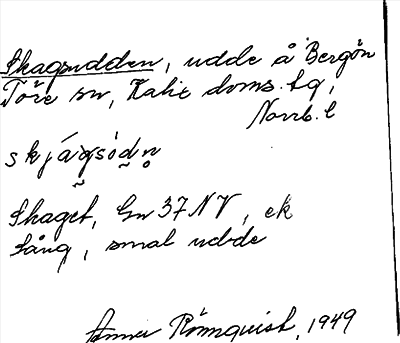 Skagsudden, udde å Bergön
Töre sn, Kalix doms. tg,
Norrb. l
skjágsòdn
Skaget, Gn 37 NV, ek
lång, smal udde
Anna Römquist, 1949